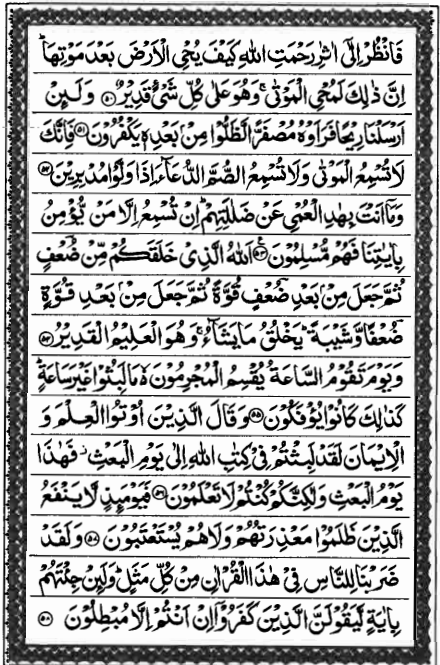 فَانْظُرْ اِلٰٓى اٰثٰرِ رَحْمَتِ اللّٰهِ كَيْفَ يُحْيِ الْاَرْضَ بَعْدَ مَوْتِهَا ؕ
اِنَّ ذٰلِكَ لَمُحْيِ الْمَوْتٰى ۚ وَهُوَ عَلٰى كُلِّ شَىْءٍ قَدِيْرٌ ﴿۵۰﴾ وَلَىِٕنْ
اَرْسَلْنَا رِيْحًا فَرَاَوْهُ مُصْفَرًّا لَّظَلُّوْا مِنْۢ بَعْدِهٖ يَكْفُرُوْنَ ﴿۵۱﴾ فَاِنَّكَ
لَا تُسْمِعُ الْمَوْتٰى وَلَا تُسْمِعُ الصُّمَّ الدُّعَآءَ اِذَا وَلَّوْا مُدْبِرِيْنَ ﴿۵۲﴾
وَمَاۤ اَنْتَ بِهٰدِ الْعُمْيِ عَنْ ضَلٰلَتِهِمْ ؕ اِنْ تُسْمِعُ اِلَّا مَنْ يُّؤْمِنُ
بِاٰيٰتِنَا فَهُمْ مُّسْلِمُوْنَ ﴿۵۳﴾ اَللّٰهُ الَّذِيْ خَلَقَكُمْ مِّنْ ضُعْفٍ
ثُمَّ جَعَلَ مِنْۢ بَعْدِ ضُعْفٍ قُوَّةً ثُمَّ جَعَلَ مِنْۢ بَعْدِ قُوَّةٍ
ضُعْفًا وَّشَيْبَةً ؕ يَخْلُقُ مَا يَشَآءُ ۚ وَهُوَ الْعَلِيْمُ الْقَدِيْرُ ﴿۵۴﴾
وَيَوْمَ تَقُوْمُ السَّاعَةُ يُقْسِمُ الْمُجْرِمُوْنَ ۙ مَا لَبِثُوْا غَيْرَ سَاعَةٍ ؕ
كَذٰلِكَ كَانُوْا يُؤْفَكُوْنَ ﴿۵۵﴾ وَقَالَ الَّذِيْنَ اُوْتُوا الْعِلْمَ وَ
الْاِيْمَانَ لَقَدْ لَبِثْتُمْ فِيْ كِتٰبِ اللّٰهِ اِلٰى يَوْمِ الْبَعْثِ ؗ فَهٰذَا
يَوْمُ الْبَعْثِ وَلٰكِنَّكُمْ كُنْتُمْ لَا تَعْلَمُوْنَ ﴿۵۶﴾ فَيَوْمَىِٕذٍ لَّا يَنْفَعُ
الَّذِيْنَ ظَلَمُوْا مَعْذِرَتُهُمْ وَلَا هُمْ يُسْتَعْتَبُوْنَ ﴿۵۷﴾ وَلَقَدْ
ضَرَبْنَا لِلنَّاسِ فِيْ هٰذَا الْقُرْاٰنِ مِنْ كُلِّ مَثَلٍ ؕ وَلَىِٕنْ جِئْتَهُمْ
بِاٰيَةٍ لَّيَقُوْلَنَّ الَّذِيْنَ كَفَرُوْۤا اِنْ اَنْتُمْ اِلَّا مُبْطِلُوْنَ ﴿۵۸﴾